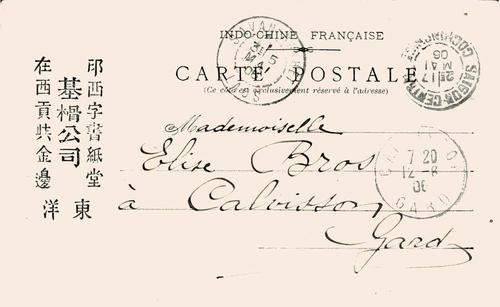 INDO-CHINE FRANÇAISE
CARTE POSTALE
(Ce côté est exclusivement réservé à l'adresse)
SAIGON CENTRAL
COCHINCHINE
17 MAI 06
Mademoiselle
Elise Bros
à Calvisson
Gard
7 20
12 -6
06
GARD
西字書紙堂
基㮈公司
在西貢𠀋金邊
東洋